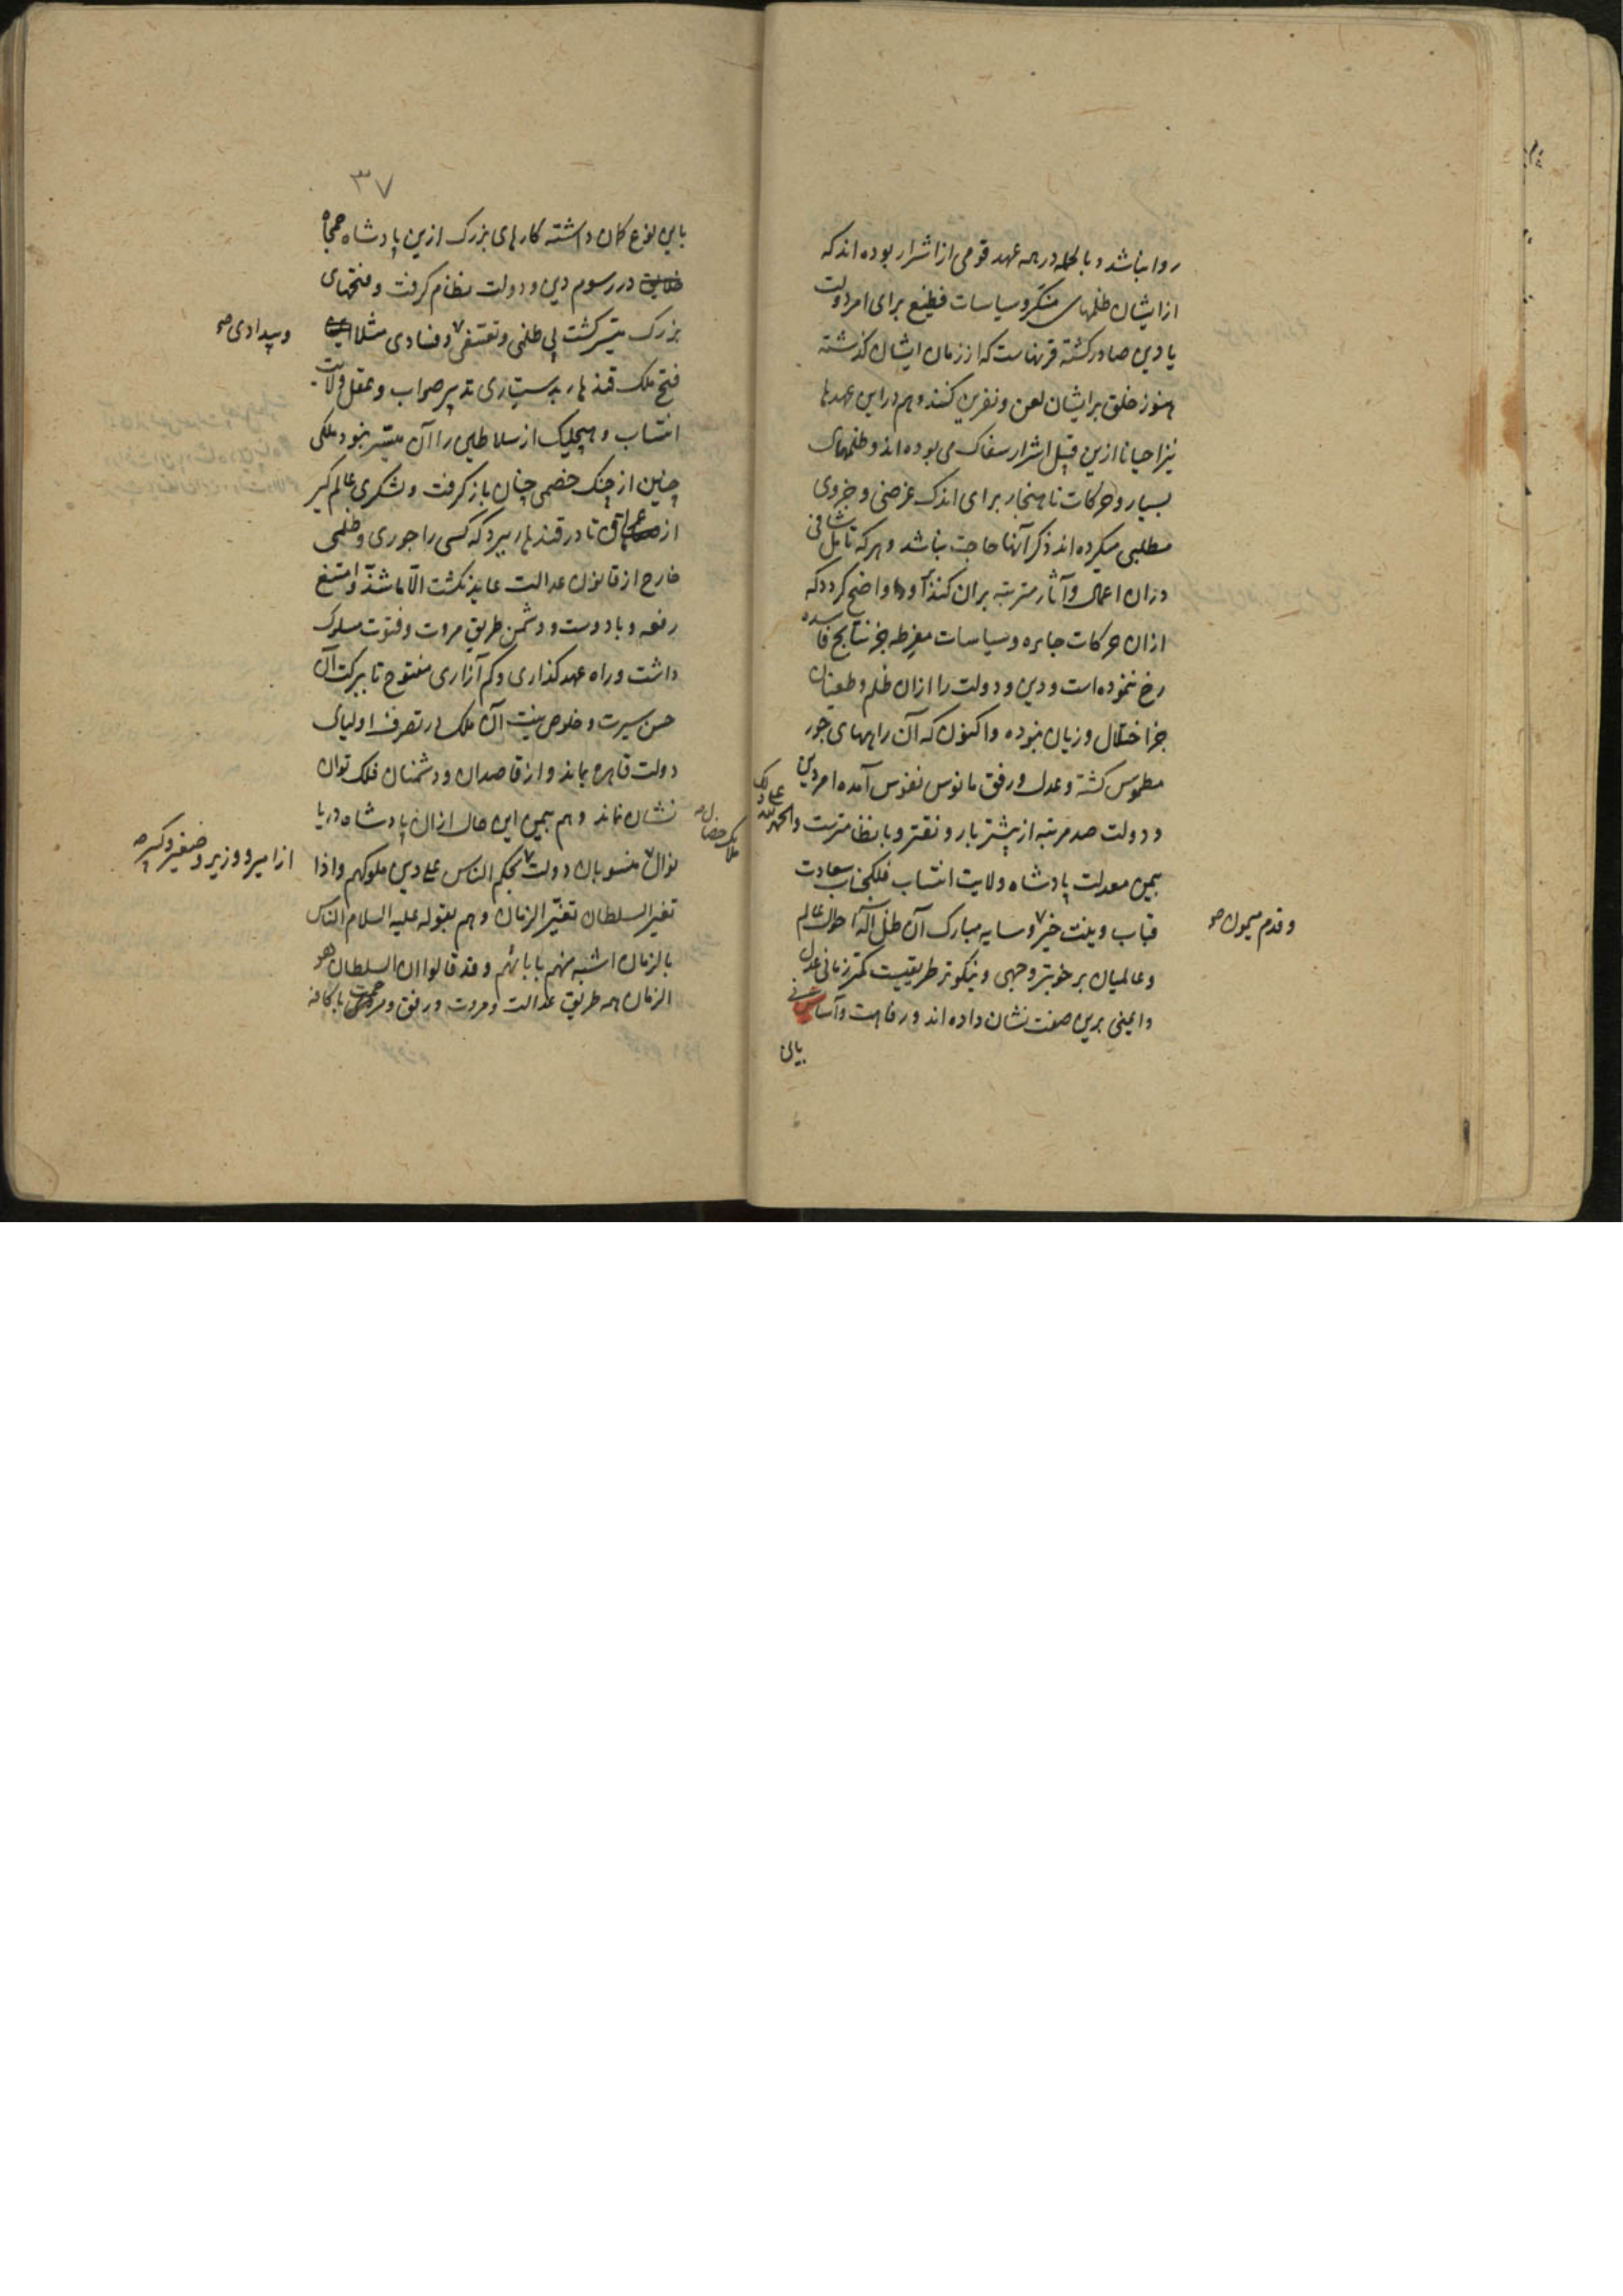 روا نباشد و بالجمله در همه عهد قومی از اشرار بوده اند که
از ایشان ظلمهای منکر و سیاسات فظیع برای امر دولت
یا دین صادر کشته قرنهاست که از زمان ایشان کذشته
هنوز خلق بر ایشان لعن و نفرین کنند و هم در این عهدها
نیز احیانا ازین قبیل اشرار سفاک می بوده اند و ظلمهای
بسیار و حرکات ناهنجار برای اندک غرضی و جزوی
مطلبی میکرده اند ذکر آنها حاجت نباشد و هر که تامل شافی
در ان اعمال و آثار مترتبه بران کند او را واضح کردد که
ازان حرکات جابره و سیاسات مفرطه جز نتایج فاسده
رخ ننموده است و دین و دولت را ازان ظلم و طغیان
جز اختلال و زیان نبوده و اکنون که آن راههای جور
مطموس کشته و عدل و رفق مانوس نفوس آمده امر دین
و دولت صد مرتبه از پیشتر بارونقتر و بانظامترست والحمد لله علی ذلک
بیمن معدلت پادشاه ولایت انتساب فلکجناب سعادت
قباب و نیت خیر و سایه مبارک آن ظل اله احوال عالم
و قدم میمون صح
و عالمیان بر خوبتر وجهی و نیکوتر طریقیست کمتر زمانی عدل
و ایمنی برین صفت نشان داده اند و رفاهت و آسایش
۳۷
باین نوع کمان داشته کارهای بزرک ازین پادشاه جمجاه
ملایک خصال صح
در رسوم دین و دولت نظام کرفت و فتحهای
بزرک میسر کشت بی ظلمی و تعسفی و فسادی مثلا
و بیدادی صح
فتح ملک قندهار بدستیاری تدبیر صواب و عقل ولایت
انتساب و هیچیک از سلاطین را آن میسر نبود ملکی
چنین از چنک خصمی چنان باز کرفت و لشکری عالم کیر
از عراق تا در قندهار ببرد که کسی را جوری و ظلمی
خارج از قانون عدالت عاید نکشت الا ما شذ و امتنع
رفعه و با دوست و دشمن طریق مروت و فتوت مسلوک
داشت و راه عهد کذاری و کم آزاری مفتوح تا ببرکت آن
حسن سیرت و خلوص نیت آن ملک در تصرف اولیای
دولت قاهره بماند و از قاصدان و دشمنان فلک توان
نشان نماند و هم بیمن این حال ازان پادشاه دریا
نوال منسوبان دولت بحکم الناس علی دین ملوکهم و اذا
از امیر و وزیر و صغیر و کبیر صح
تغیر السلطان تغیر الزمان و هم بقوله علیه السلام الناس
بالزمان اشبه منهم بابائهم و قد قالوا ان السلطان هو
الزمان همه طریق عدالت و مروت و رفق و مرحمت با کافه